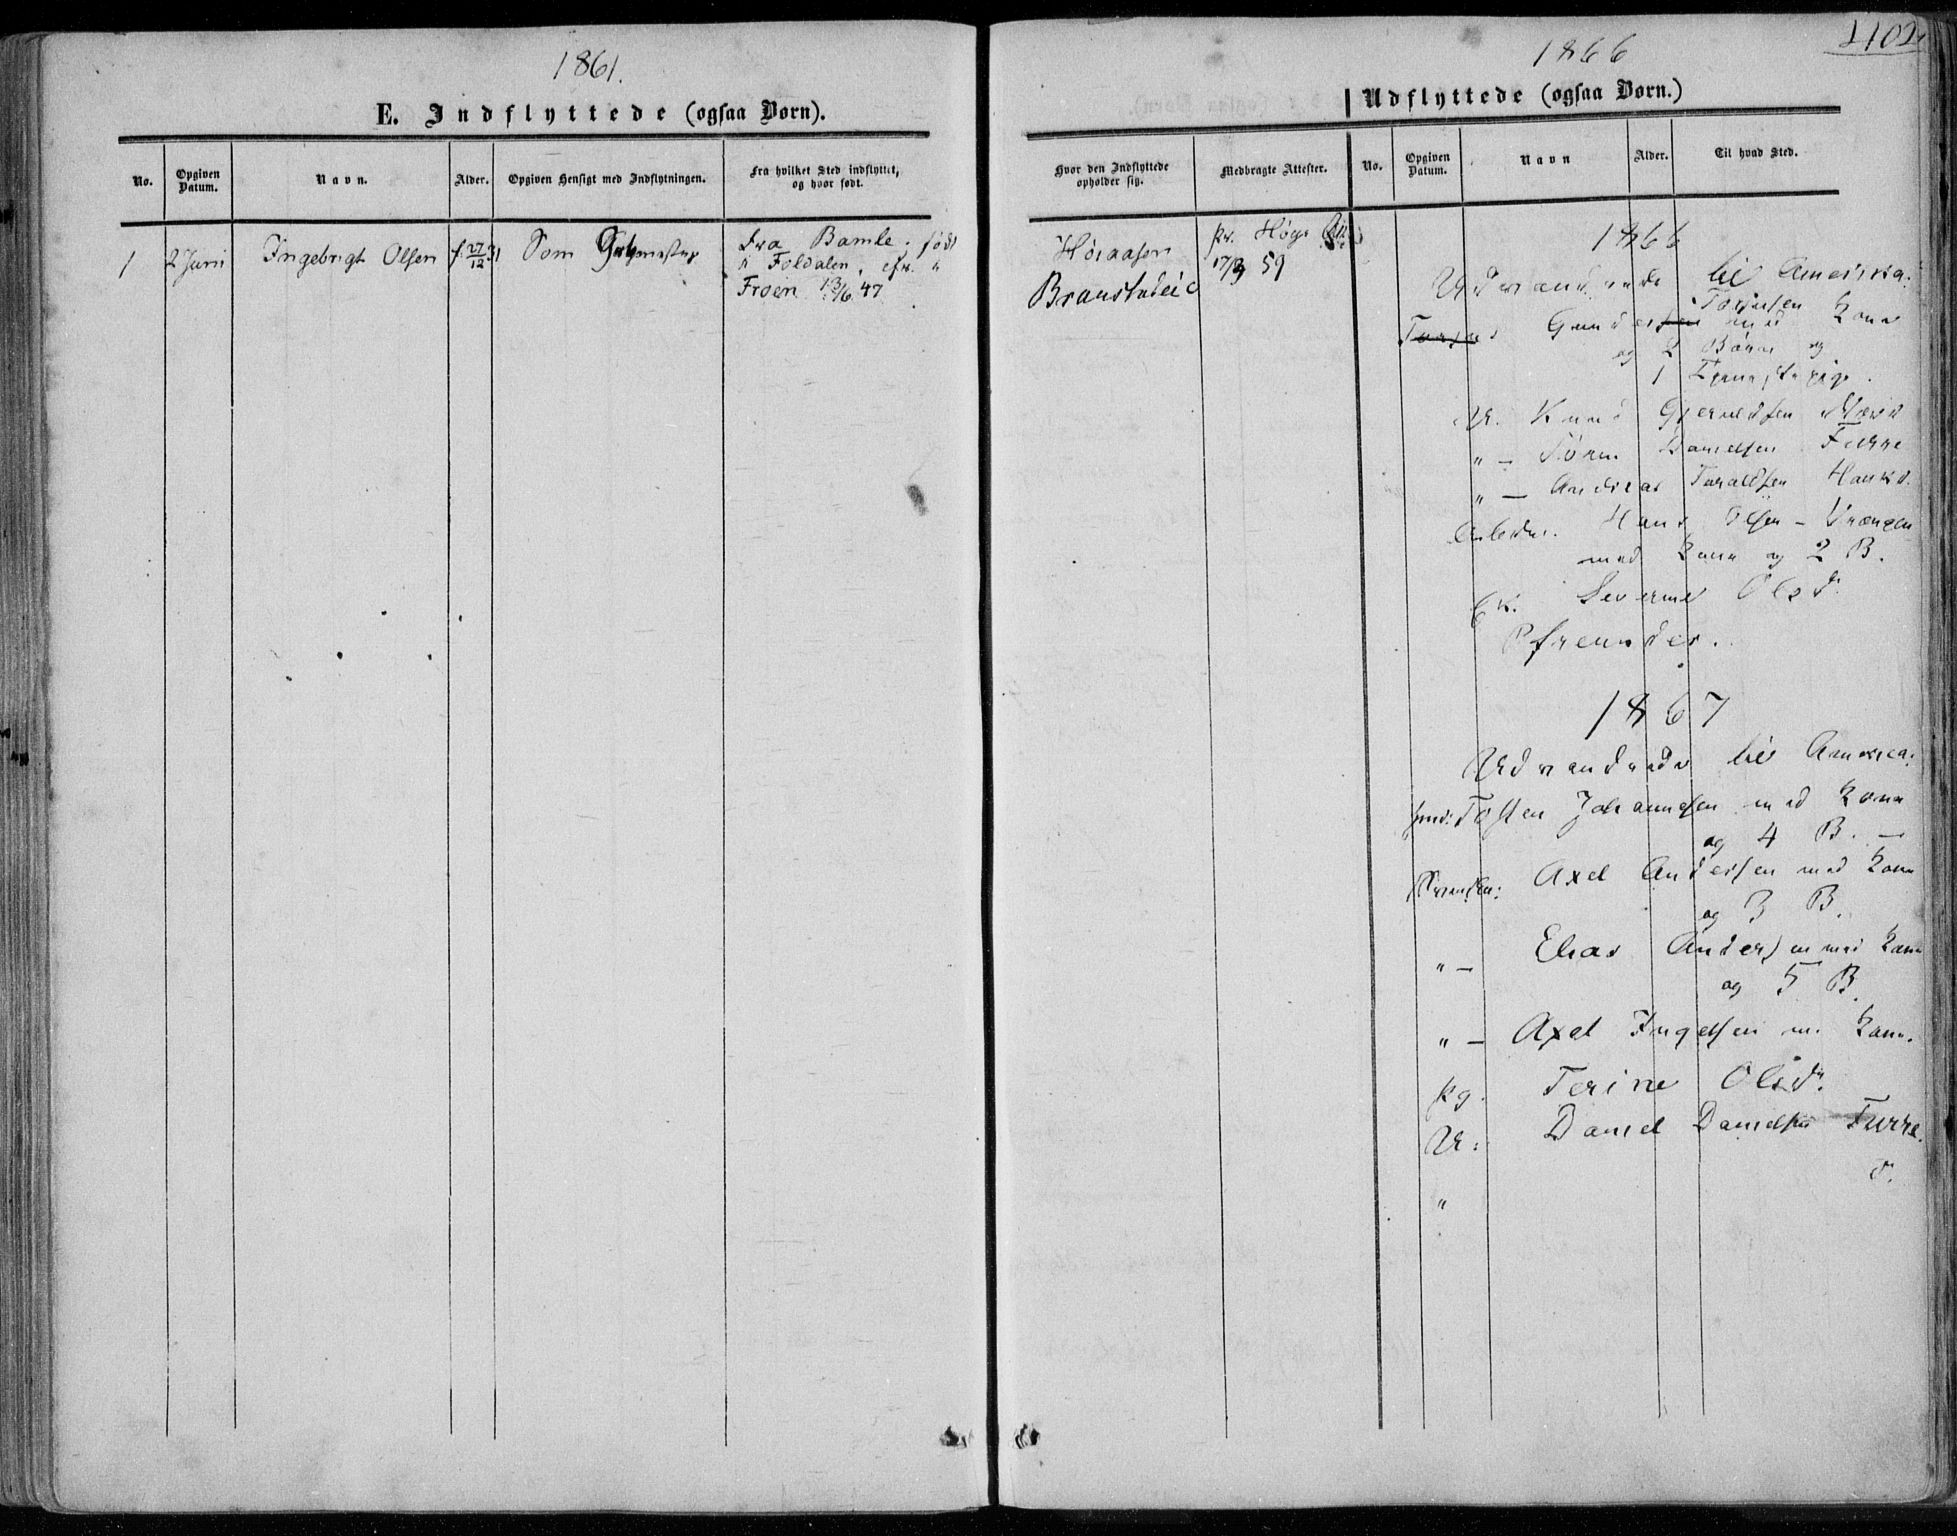 1861.
E. Indflyttede (ogsaa Børn).
No. Opgiven Datum. Navn. Alder. Opgiven Hensigt med Indflytningen. Fra hvilket Sted indflyttet, og hvor født.
1 2 Juni Ingebrigt Olsen f. 27/12 31 Som
Fra Bamle. født
i Foldalen,
Froen 13/6 47
1102
1866
Udflyttede (ogsaa Børn.)
Hvor den Indflyttede opholder sig. Medbragte Attester. No. Opgiven Datum. Navn Alder. Til hvad Sted.
Høiaasen
pr. Høgs
17/3 59
1866
Udvandrede til America:
Torjusen
Gunder med Kone
og 2 Børn og
1 Tjenestepige.
U. Knud
" — Danielsen Furre
" — Andreas Taraldsen
Arbeider. Hans Olsen —
med Kone og 2 B.
Severine Olsd.
1867
Udvandrede til America:
Tosten Johannesen med Kone
og 4 B. —
Axel Andersen med Kone
og 3 B.
" — Elias Andersen med Kone
og 5 B.
" — Axel Ingelsen m. Kone.
pg. Terine Olsdr.
U: Daniel Danielsen Furre.
"